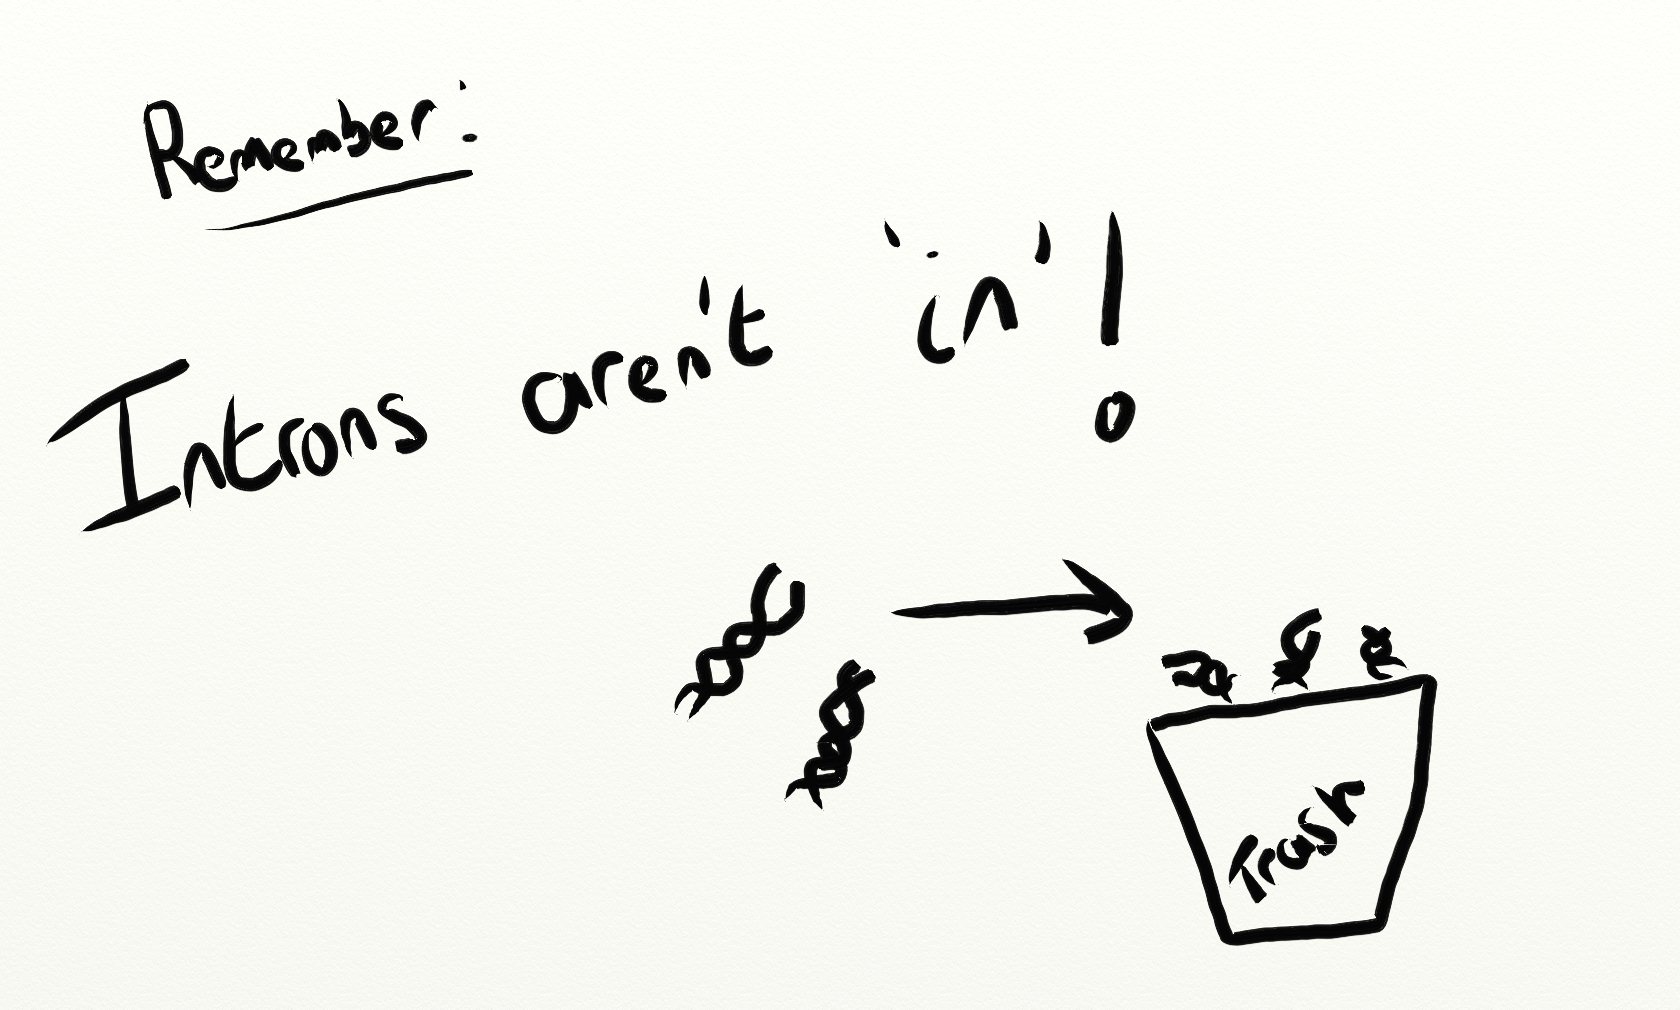 Remember:
Introns aren't 'in'!
Trash